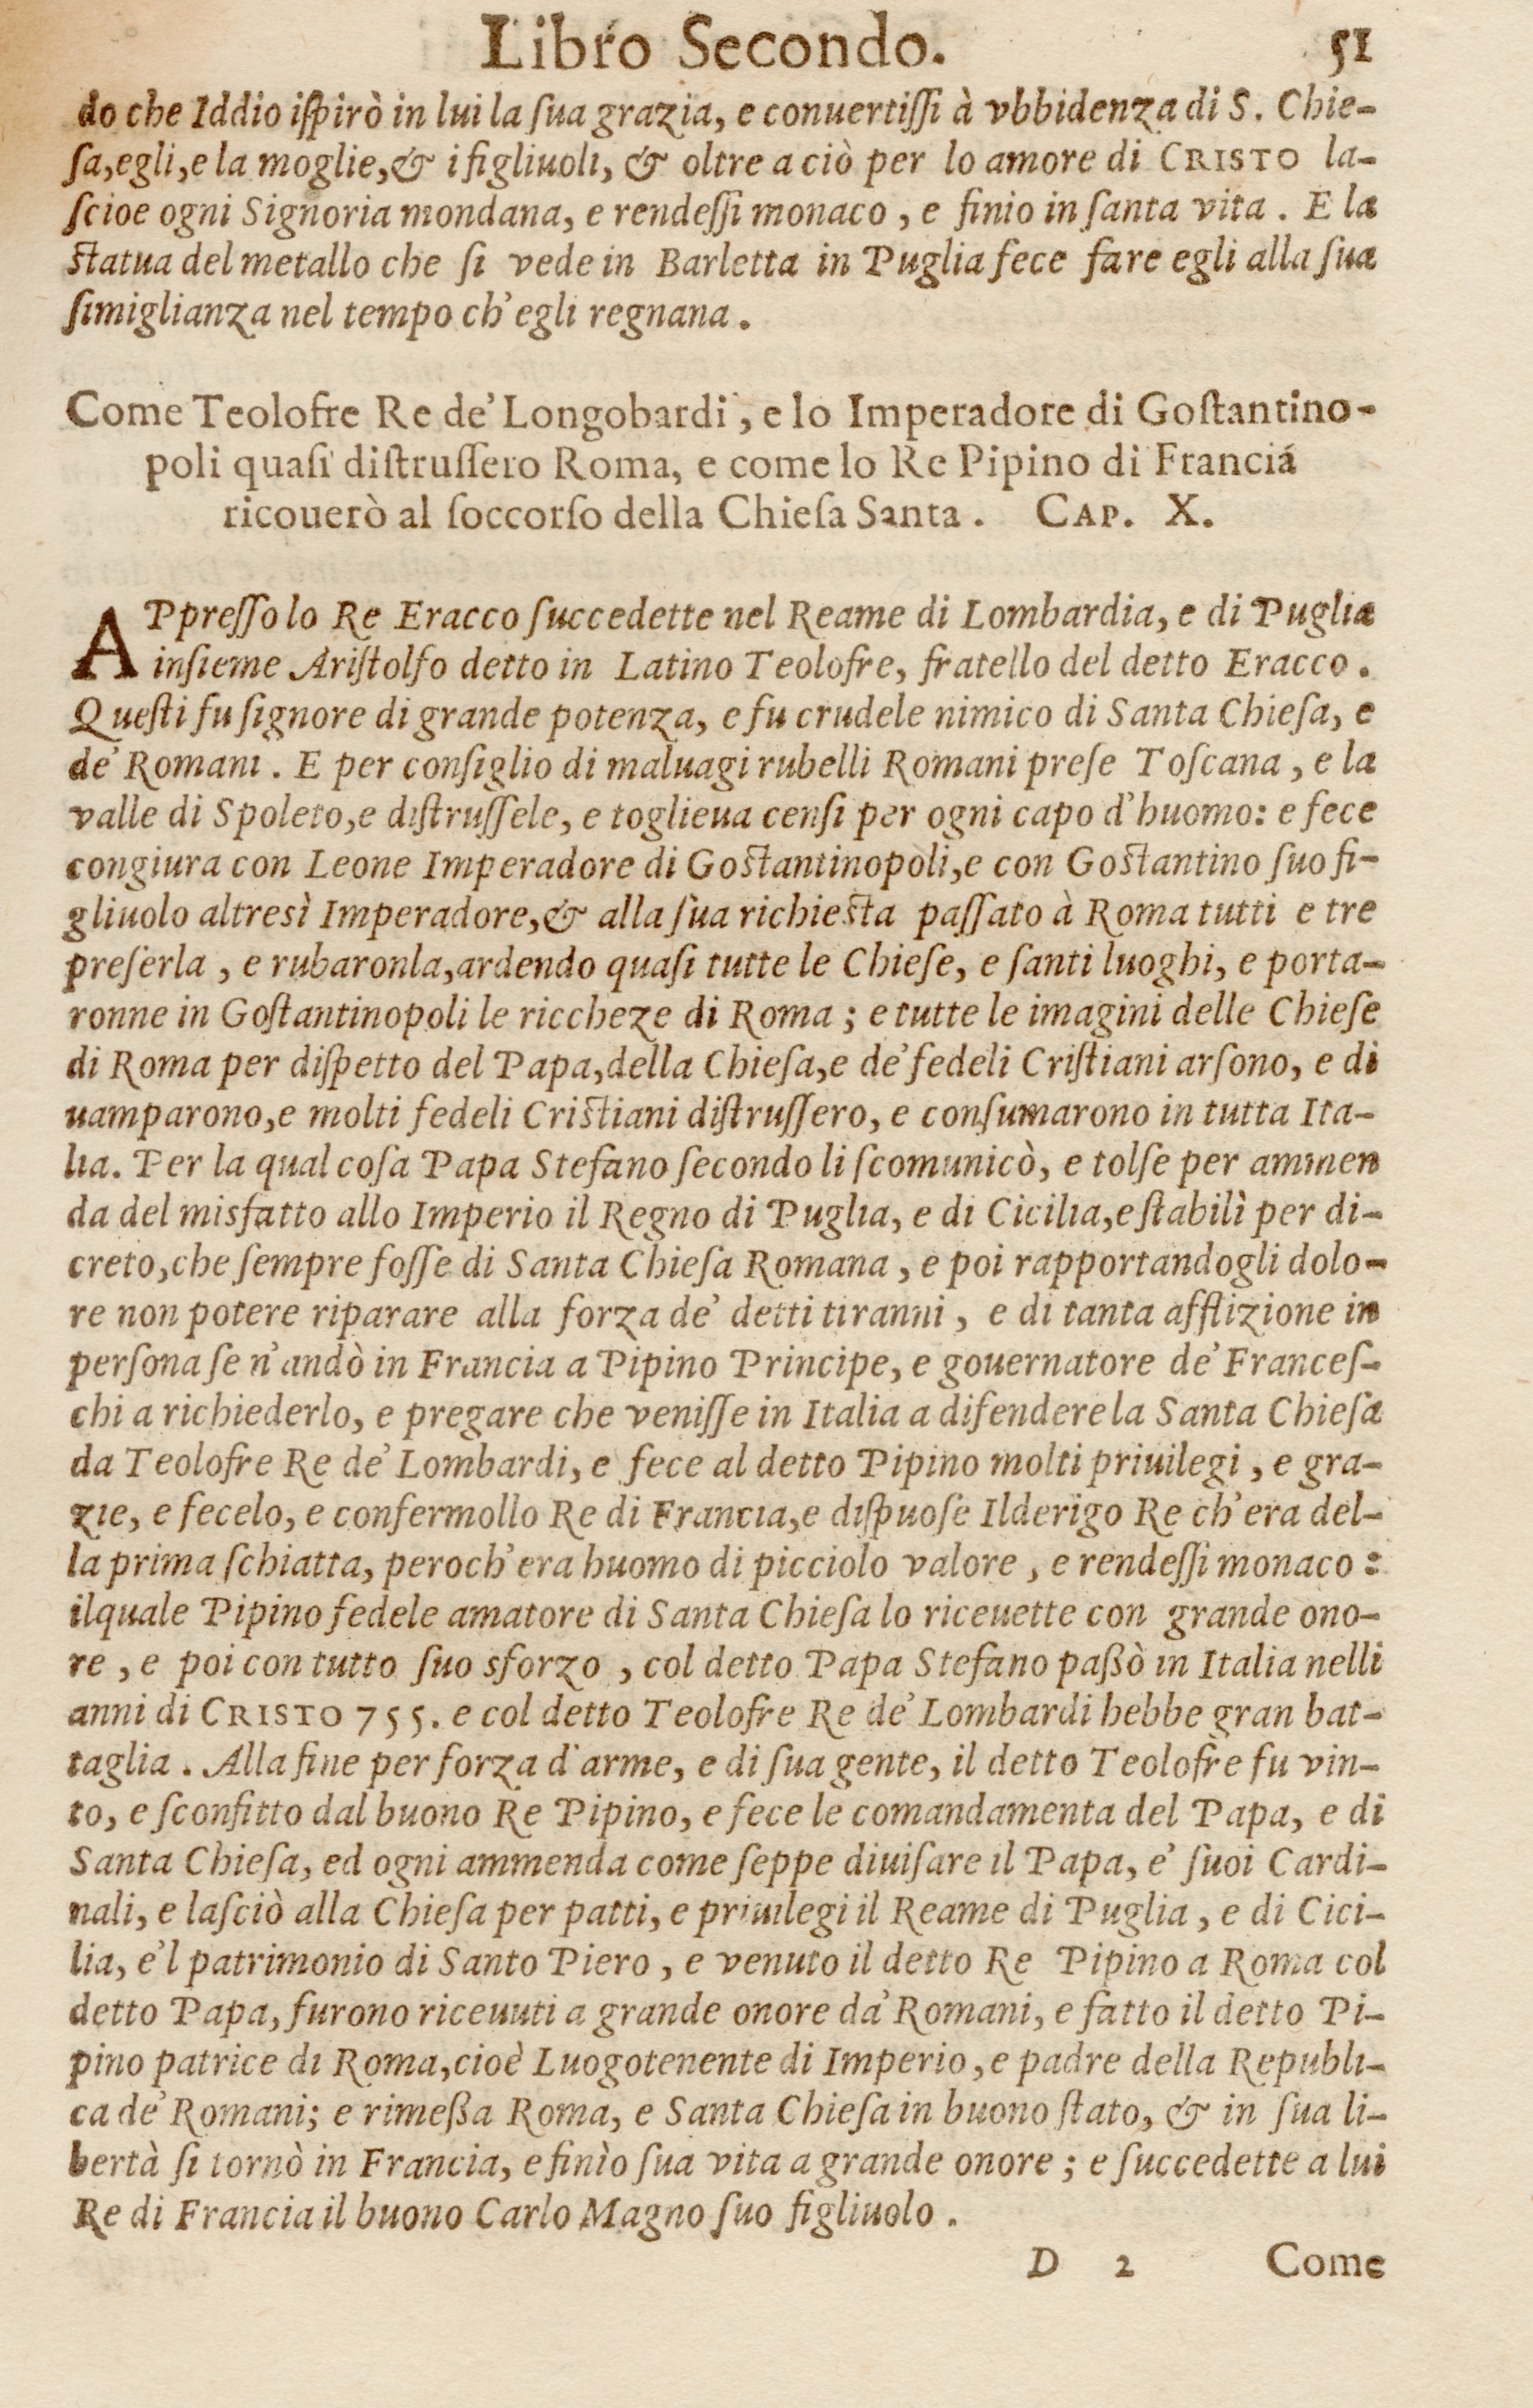 Libro Secondo. 51
do che Iddio iſpirò in lui la ſua grazia, e conuertiſſi à vbbidenza di S. Chie-
ſa, egli, e la moglie, & i figliuoli, & oltre a ciò per lo amore di CRISTO la-
ſcioe ogni Signoria mondana, e rendeſſi monaco, e finio in ſanta vita. E la
ſtatua del metallo che ſi vede in Barletta in Puglia fece fare egli alla ſua
ſimiglianza nel tempo ch'egli regnana.
Come Teolofre Re de' Longobardi, e lo Imperadore di Goſtantino-
poli quaſi diſtruſſero Roma, e come lo Re Pipino di Franciá
ricouerò al ſoccorſo della Chieſa Santa. CAP. X.
APpreſſo lo Re Eracco ſuccedette nel Reame di Lombardia, e di Puglia
inſieme Ariſtolfo detto in Latino Teolofre, fratello del detto Eracco.
Queſti fu ſignore di grande potenza, e fu crudele nimico di Santa Chieſa, e
de' Romani. E per conſiglio di maluagi rubelli Romani preſe Toſcana, e la
valle di Spoleto, e diſtruſſele, e toglieua cenſi per ogni capo d'huomo: e fece
congiura con Leone Imperadore di Goſtantinopoli, e con Goſtantino ſuo fi-
gliuolo altresì Imperadore, & alla ſua richieſta paſſato à Roma tutti e tre
preſerla, e rubaronla, ardendo quaſi tutte le Chieſe, e ſanti luoghi, e porta-
ronne in Goſtantinopoli le riccheze di Roma; e tutte le imagini delle Chieſe
di Roma per diſpetto del Papa, della Chieſa, e de' fedeli Criſtiani arſono, e di
uamparono, e molti fedeli Criſtiani diſtruſſero, e conſumarono in tutta Ita-
lia. Per la qual coſa Papa Stefano ſecondo li ſcomunicò, e tolſe per ammen
da del misfatto allo Imperio il Regno di Puglia, e di Cicilia, e ſtabilì per di-
creto, che ſempre foſſe di Santa Chieſa Romana, e poi rapportandogli dolo-
re non potere riparare alla forza de' detti tiranni, e di tanta afflizione in
perſona ſe n'andò in Francia a Pipino Principe, e gouernatore de' Franceſ-
chi a richiederlo, e pregare che veniſſe in Italia a difendere la Santa Chieſa
da Teolofre Re de' Lombardi, e fece al detto Pipino molti priuilegi, e gra-
zie, e fecelo, e confermollo Re di Francia, e diſpuoſe Ilderigo Re ch'era del-
la prima ſchiatta, peroch'era huomo di picciolo valore, e rendeſſi monaco:
ilquale Pipino fedele amatore di Santa Chieſa lo riceuette con grande ono-
re, e poi con tutto ſuo sforzo, col detto Papa Stefano paßò in Italia nelli
anni di CRISTO 755. e col detto Teolofre Re de' Lombardi hebbe gran bat-
taglia. Alla fine per forza d'arme, e di ſua gente, il detto Teolofre fu vin-
to, e ſconfitto dal buono Re Pipino, e fece le comandamenta del Papa, e di
Santa Chieſa, ed ogni ammenda come ſeppe diuiſare il Papa, e' ſuoi Cardi-
nali, e laſciò alla Chieſa per patti, e priuilegi il Reame di Puglia, e di Cici-
lia, e'l patrimonio di Santo Piero, e venuto il detto Re Pipino a Roma col
detto Papa, furono riceuuti a grande onore da' Romani, e fatto il detto Pi-
pino patrice di Roma, cioè Luogotenente di Imperio, e padre della Republi-
ca de' Romani; e rimeßa Roma, e Santa Chieſa in buono ſtato, & in ſua li-
bertà ſi tornò in Francia, e finìo ſua vita a grande onore; e ſuccedette a lui
Re di Francia il buono Carlo Magno ſuo figliuolo.
D 2 Come